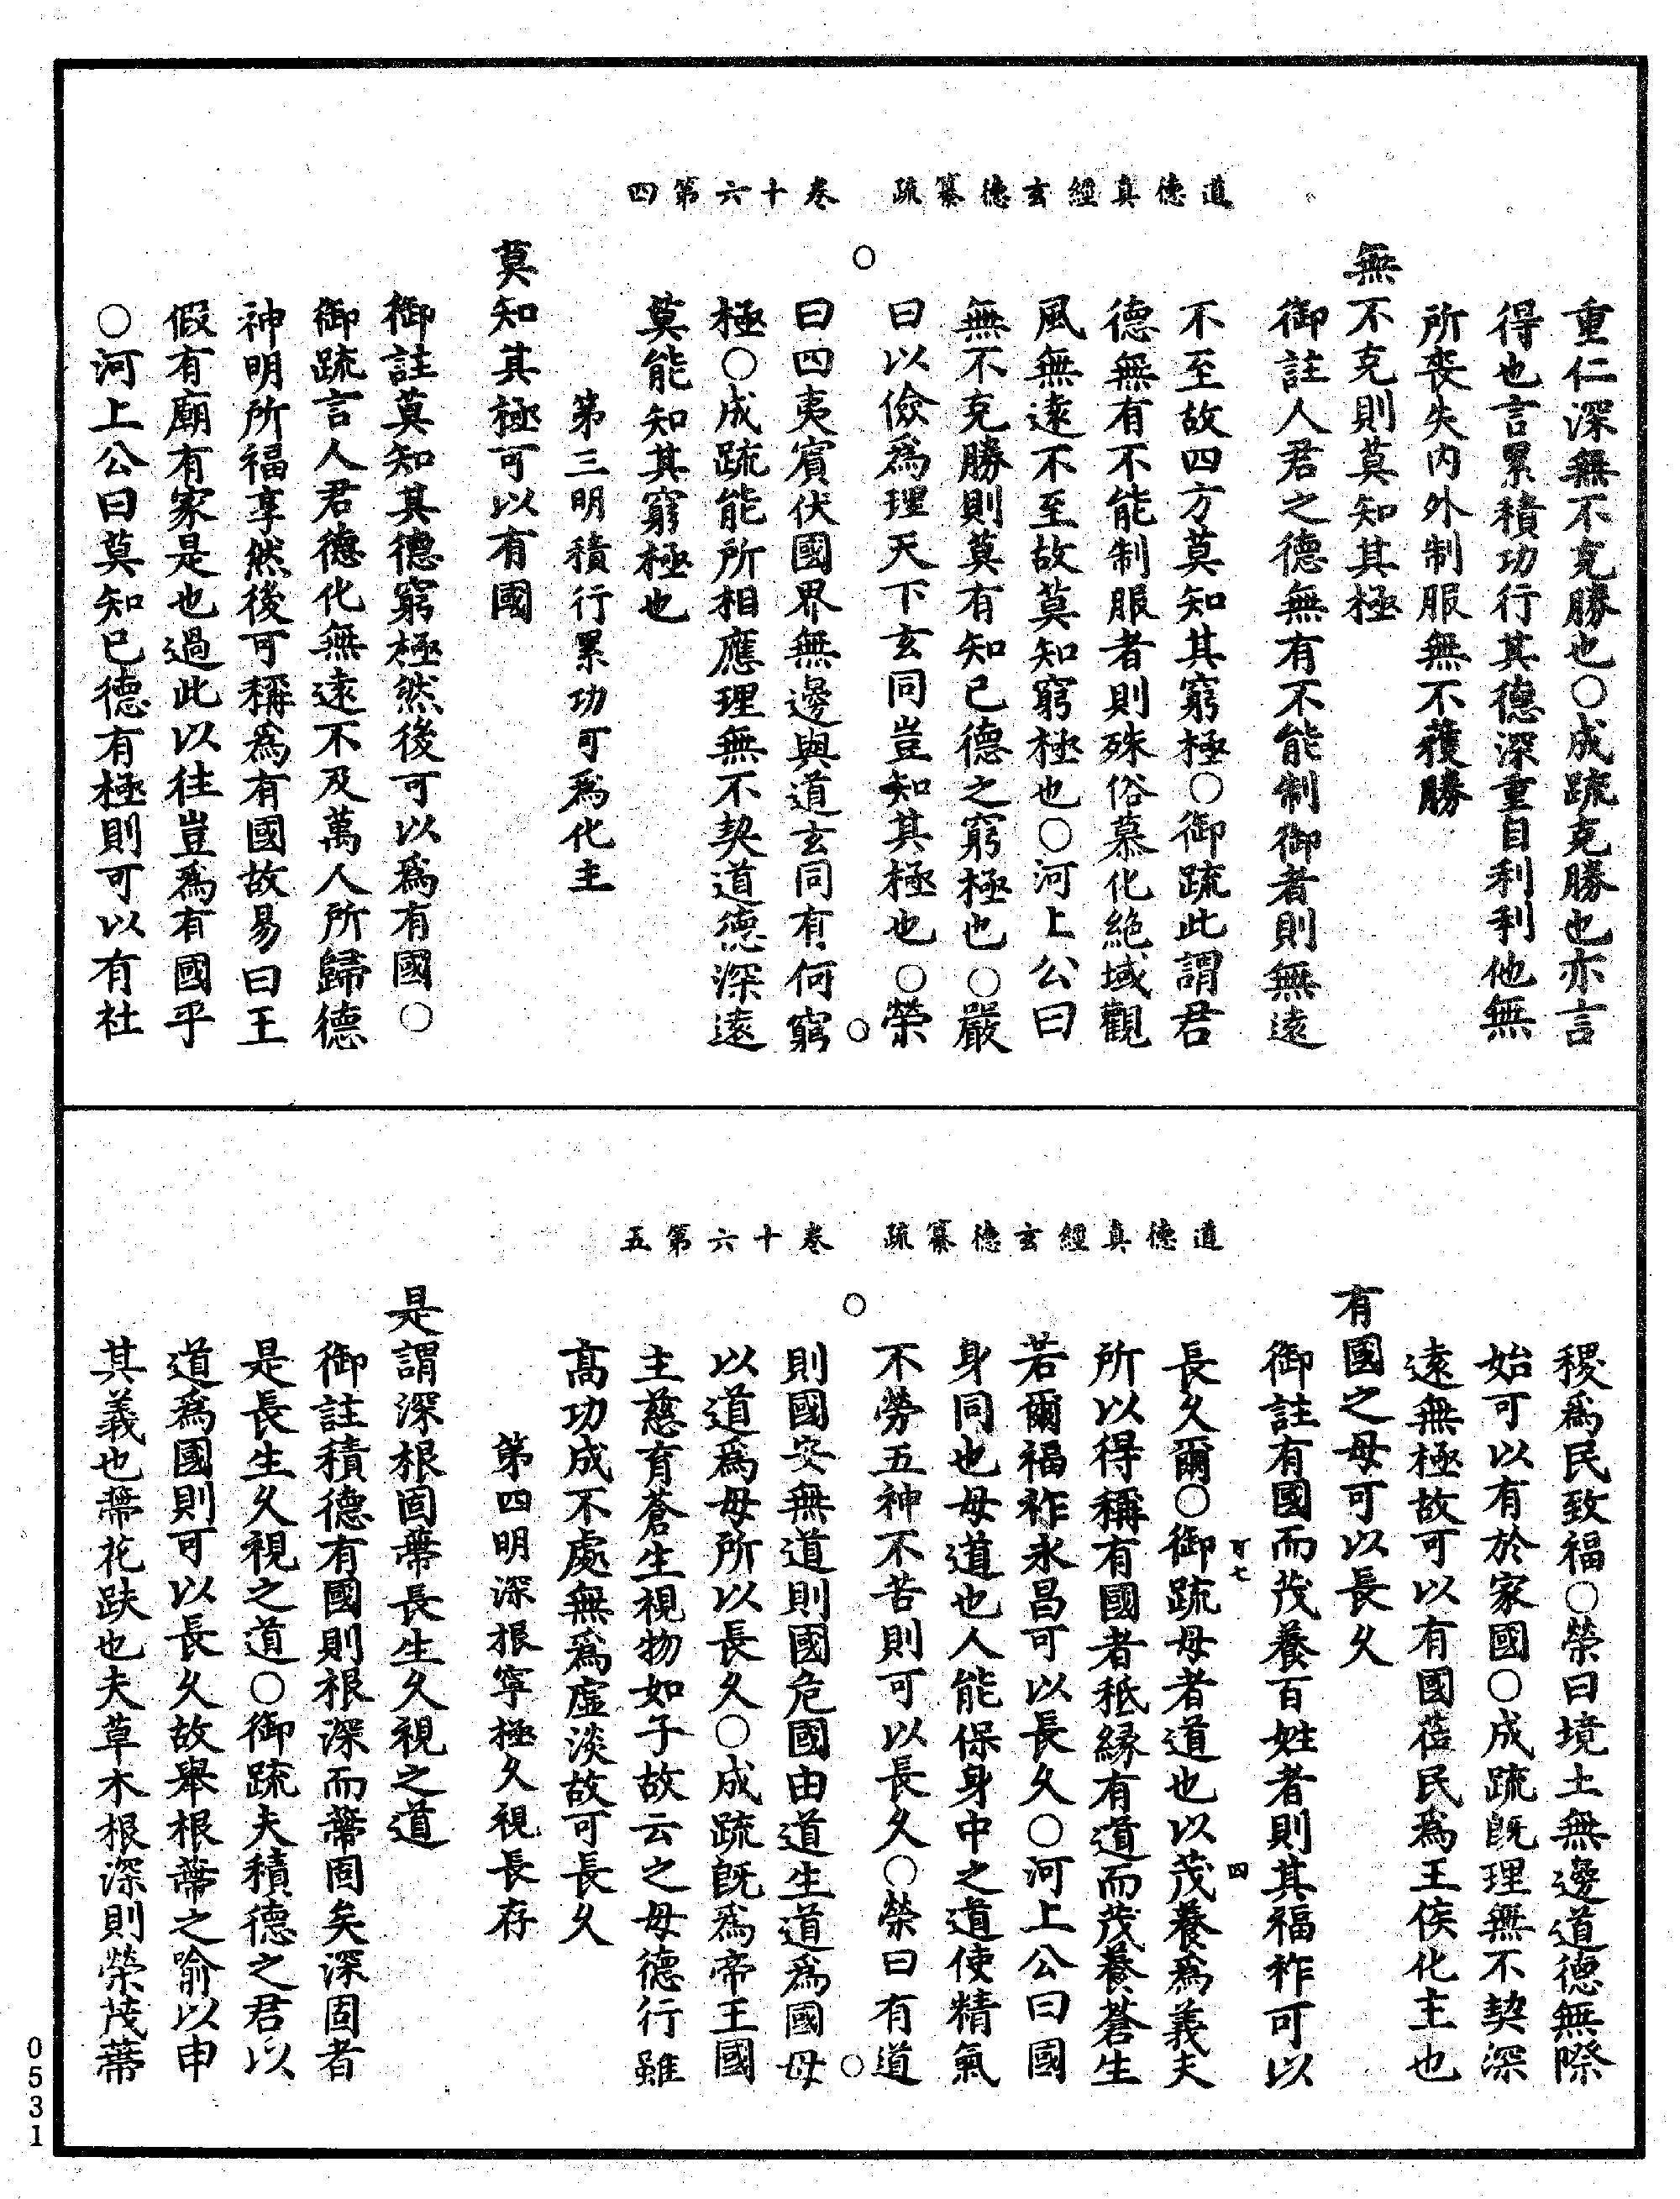 道德真經玄德纂疏　卷十六第四
重仁深無不克勝也○成疏克勝也亦言
得也言累積功行其德深重自利利他無
所喪失內外制服無不獲勝
無不克則莫知其極
御註人君之德無有不能制御者則無遠
不至故四方莫知其窮極○御疏此謂君
德無有不能制服者則殊俗慕化絶域觀
風無遠不至故莫知窮極也○河上公曰
無不克勝則莫有知己德之窮極也○嚴
曰以儉為理天下玄同豈知其極也○榮
曰四夷賓伏國界無邊與道玄同有何窮
極○成疏能所相應理無不契道德深遠
莫能知其窮極也
第三明積行累功可為化主
莫知其極可以有國
御註莫知其德窮極然後可以為有國○
御疏言人君德化無遠不及萬人所歸德
神明所福享然後可稱為有國故易曰王
假有廟有家是也過此以往豈為有國乎
○河上公曰莫知已德有極則可以有社
道德真經玄德纂疏　卷十六第五
稷為民致福○榮曰境土無邊道德無際
始可以有於家國○成疏既理無不契深
遠無極故可以有國莅民為王侯化主也
有國之母可以長久
御註有國而茂養百姓者則其福祚可以
可七　四
長久爾○御疏母者道也以茂養為義夫
所以得稱有國者秪緣有道而茂養蒼生
若爾福祚永昌可以長久○河上公曰國
身同也母道也人能保身中之道使精氣
不勞五神不苦則可以長久○榮曰有道
則國安無道則國危國由道生道為國母
以道為母所以長久○成疏既為帝王國
主慈育蒼生視物如子故云之母德行雖
高功成不處無為虛淡故可長久
第四明深根寧極久視長存
是謂深根固蔕長生久視之道
御註積德有國則根深而蔕固矣深固者
是長生久視之道○御疏夫積德之君以
道為國則可以長久故舉根蔕之喻以申
其義也蔕花趺也夫草木根深則榮茂蔕
0531